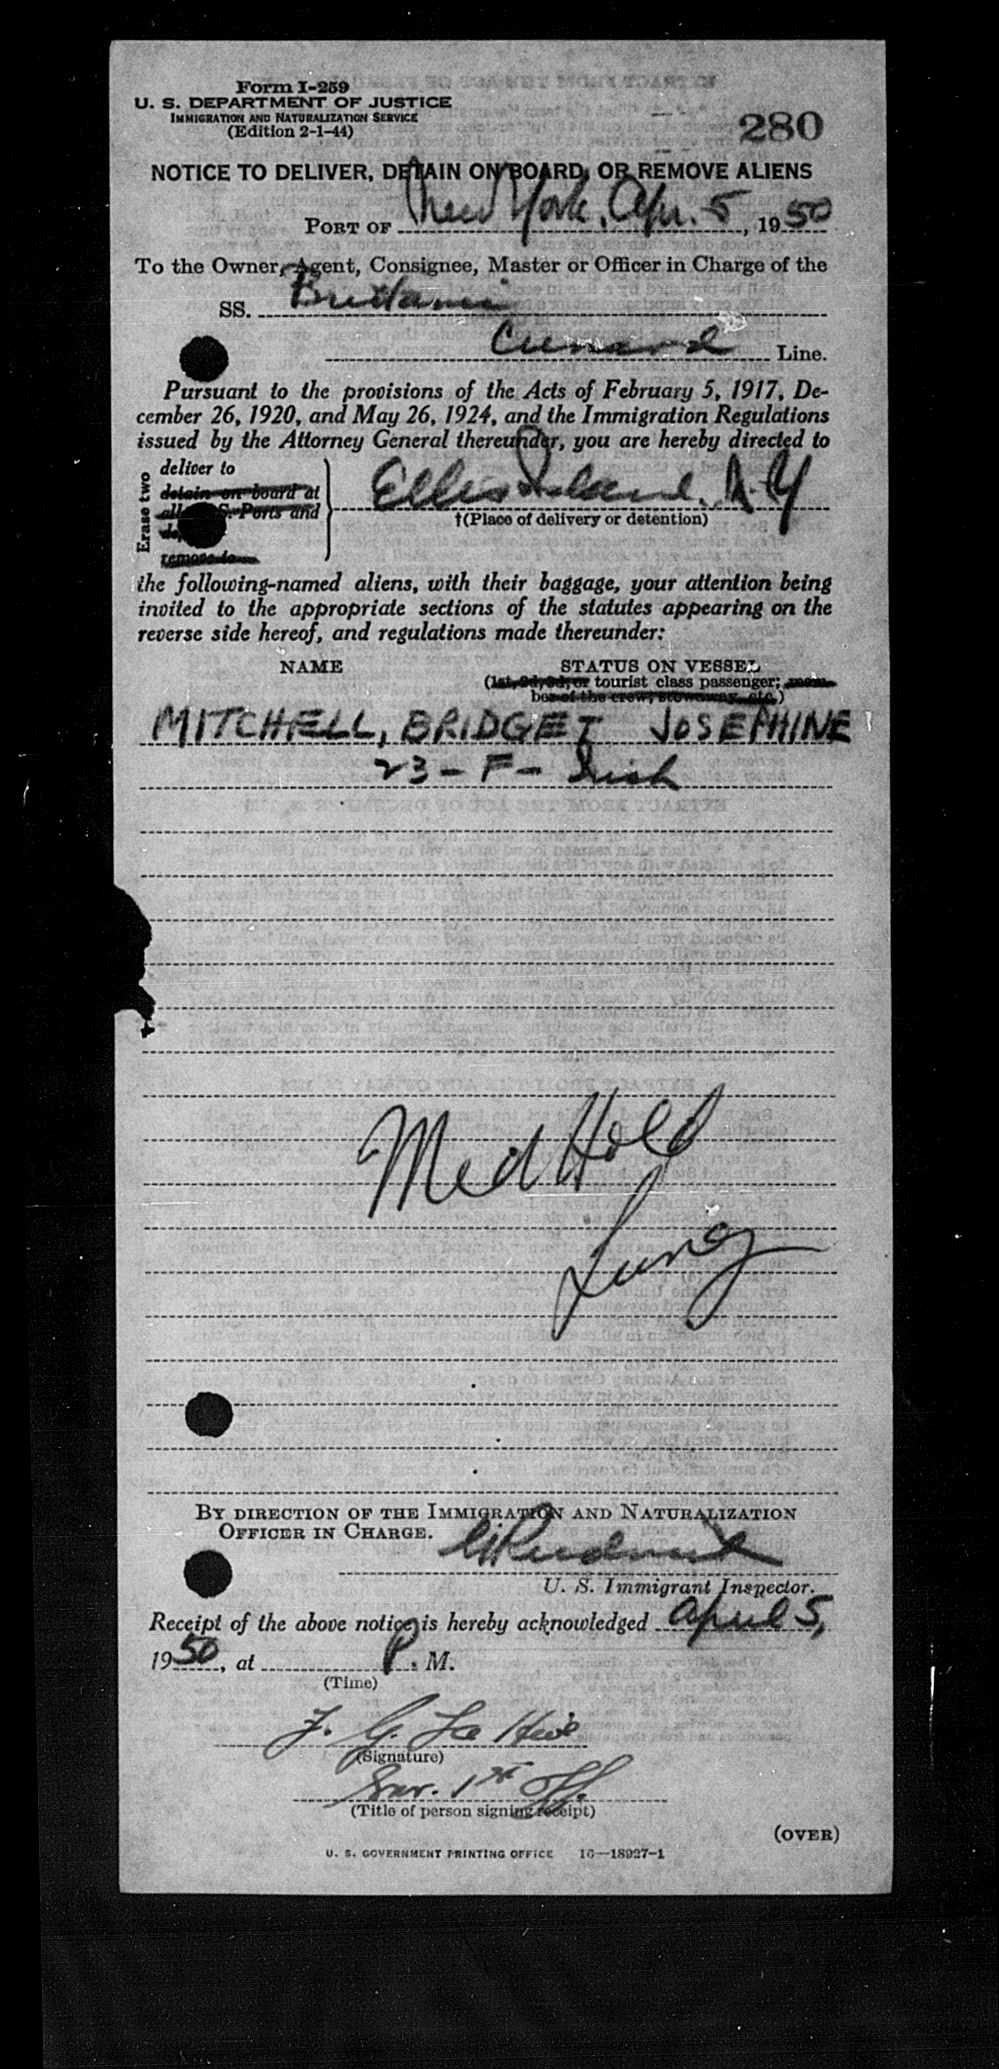 Form I-259
U. S. DEPARTMENT OF JUSTICE
IMMIGRATION AND NATURALIZATION SERVICE
(Edition 2-1-44)
280
NOTICE TO DELIVER, DETAIN ON BOARD, OR REMOVE ALIENS
PORT OF New York, Apr. 5, 1950
To the Owner, Agent, Consignee, Master or Officer in Charge of the
SS. Britannic
Cunard Line.
Pursuant to the provisions of the Acts of February 5, 1917, De-
cember 26, 1920, and May 26, 1924, and the Immigration Regulations
issued by the Attorney General thereunder, you are hereby directed to
Erase two
deliver to
detain on board at
all U.S. Ports and
remove to
Ellis Island, N.Y
†(Place of delivery or detention)
the following-named aliens, with their baggage, your attention being
invited to the appropriate sections of the statutes appearing on the
reverse side hereof, and regulations made thereunder:
NAME STATUS ON VESSEL
(1st, 2d, 3d, or tourist class passenger; mem-
ber of the crew, stowaway, etc.)
MITCHELL, BRIDGET JOSEPHINE
23 - F - Irish
Med Hold
Lung
BY DIRECTION OF THE IMMIGRATION AND NATURALIZATION
OFFICER IN CHARGE.
U. S. Immigrant Inspector.
Receipt of the above notice is hereby acknowledged April 5,
1950, at P. M.
(Time)
J. G. La
(Signature)
1st Off.
(Title of person signing receipt)
(OVER)
U. S. GOVERNMENT PRINTING OFFICE 16—18927-1